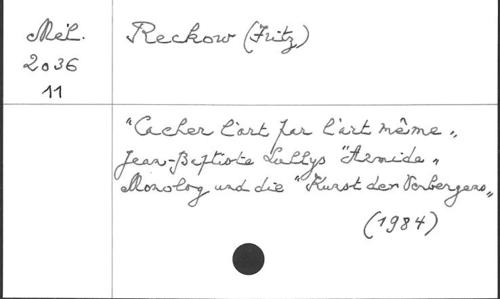 Mél.
2036
11
Reckow (Fritz)
"Cacher l'art par l'art même"
Jean-Baptiste Lullys "Armide"
Monolog und die "Kunst des Verbergens"
(1984)